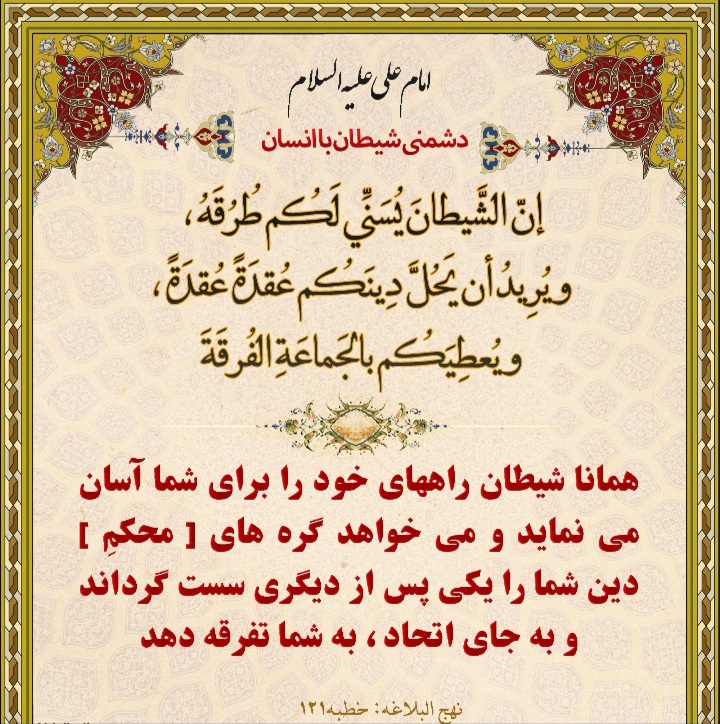 امام علی علیه السلام
دشمنی شیطان با انسان
إنّ الشَّیطانَ یُسَنِّي لَکُم طُرُقَهُ،
ویُرِیدُ أن یَحُلَّ دِینَکُم عُقدَةً عُقدَةً،
ویُعطِیَکُم بالجَماعَةِ الفُرقَةَ
همانا شیطان راههای خود را برای شما آسان
می نماید و می خواهد گره های [ محکمِ ]
دین شما را یکی پس از دیگری سست گرداند
و به جای اتحاد ، به شما تفرقه دهد
نهج البلاغه: خطبه۱۲۱